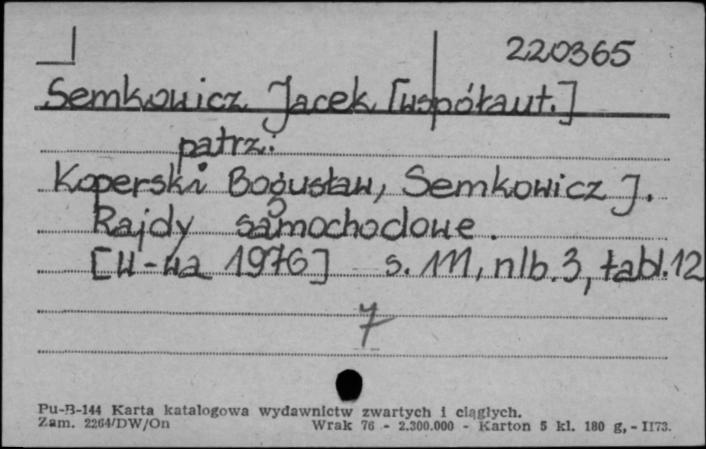 220365
Semkowicz Jacek [współaut.]
patrz:
Koperski Bogusław, Semkowicz J.
Rajdy samochodowe.
[W-wa 1976] s. 111, nlb. 3, tabl. 12
7
Pu-B-144 Karta katalogowa wydawnictw zwartych i ciągłych.
Zam. 2264/DW/On Wrak 76 - 2.300.000 - Karton 5 kl. 180 g, - II73.